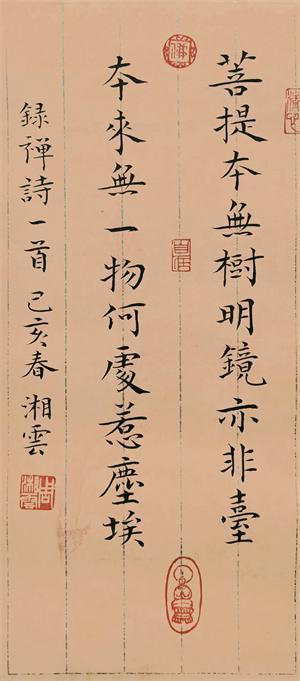 菩提本無樹明鏡亦非臺
本來無一物何處惹塵埃
録禅詩一首己亥春湘雲